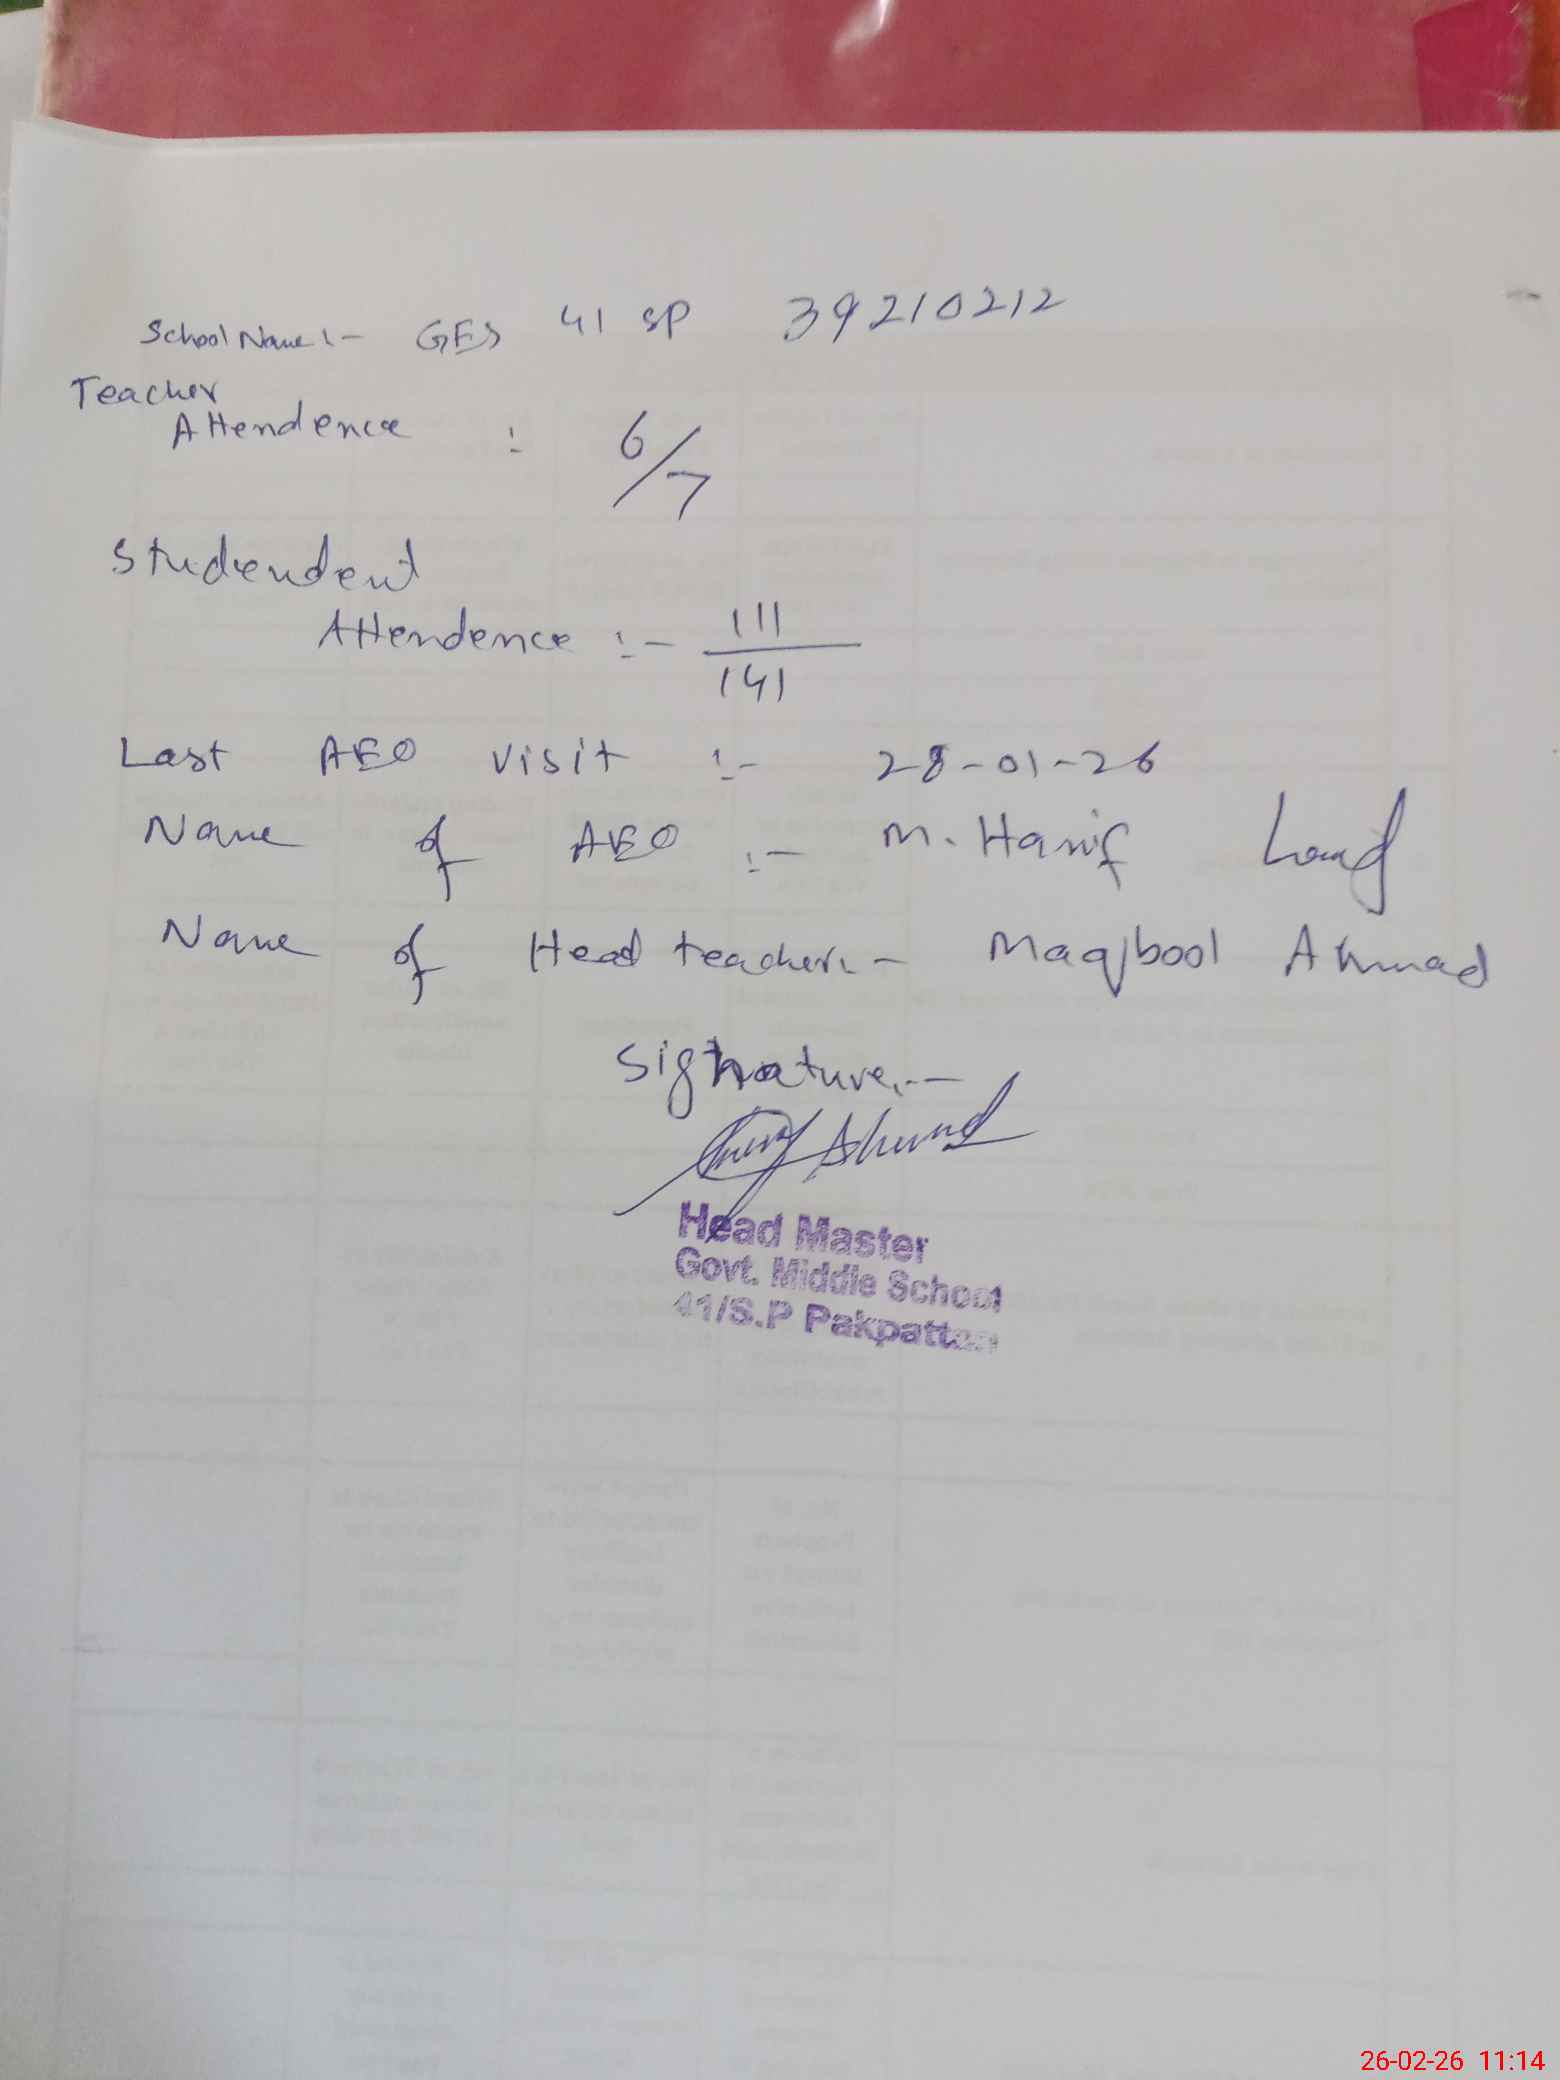 School Name :- GES 41 SP 39210212
Teacher
Attendence :- 6/7
Studendent
Attendence :- 111
141
Last AEO visit :- 28-01-26
Name of AEO :- M. Hanif
Name of Head teacher :- Maqbool Ahmad
Signature :-
Ahmad
Head Master
Govt. Middle School
41/S.P Pakpattan
26-02-26 11:14